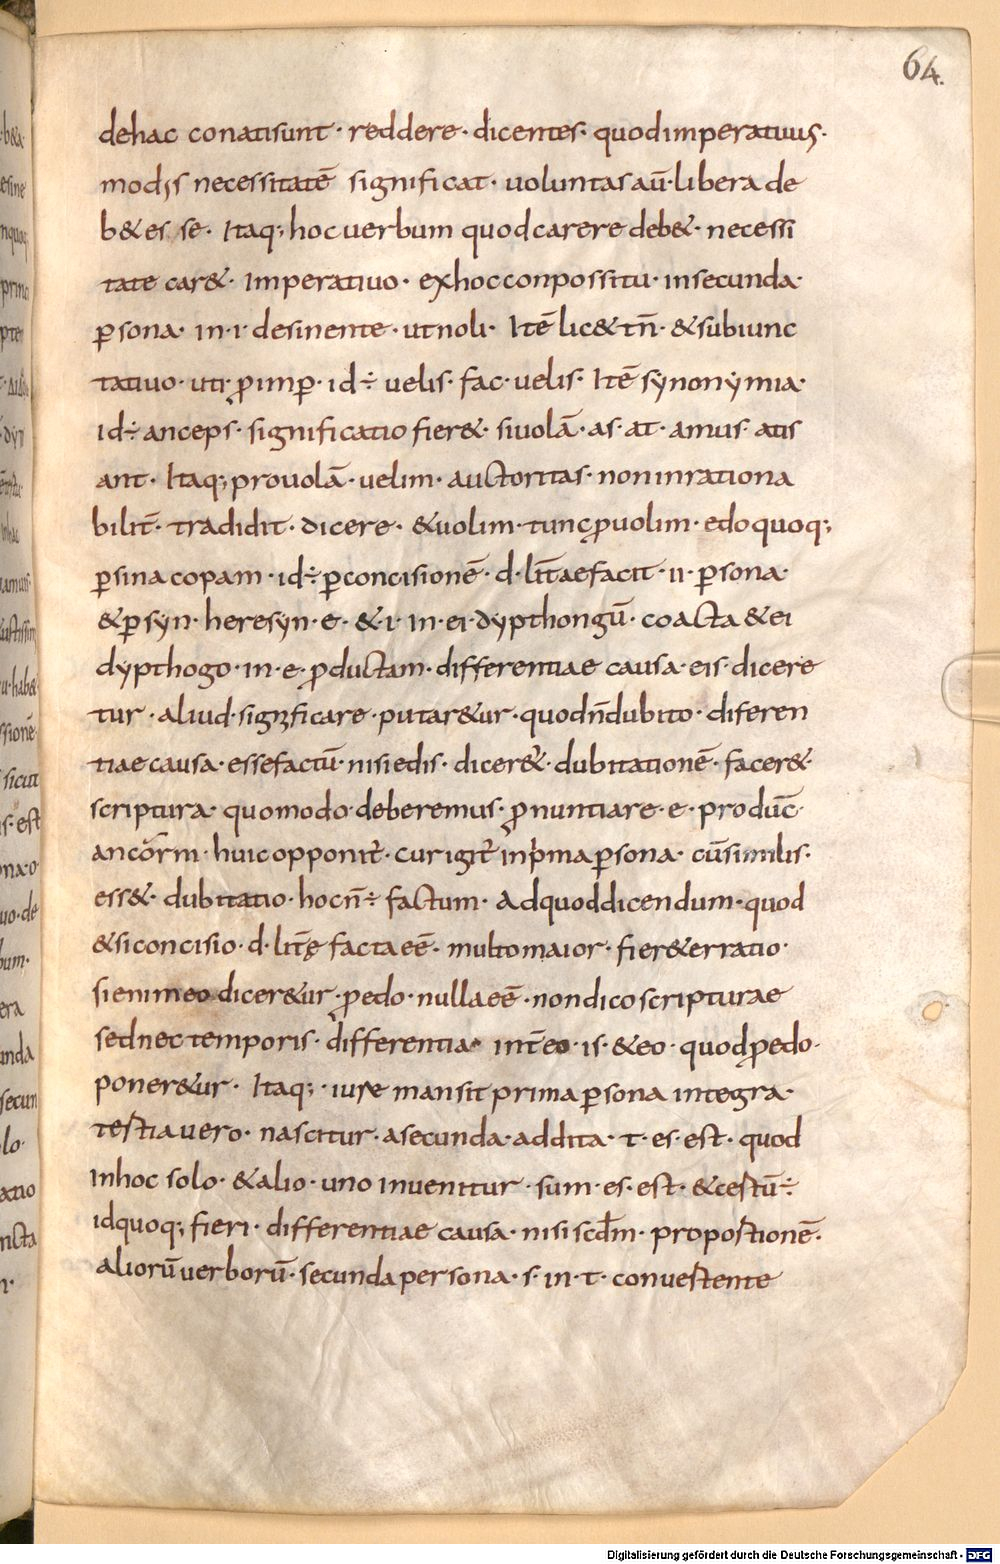 64.
dehac conatisunt · reddere · dicentes · quodimperatiuus ·
modis necessitatē significat · uoluntas aū · libera de
b& es se · Itaq; hoc uerbum quod carere deb& · necessi
tate car& · Imperatiuo · exhocconpossitu · insecunda ·
p̱sona · in · i · desinente · ut noli · Itē lic& tn̄ · & subiunc
tatiuo · uti ꝓ imp̱ · id ÷ uelis · fac · uelis · Itē synonymia ·
id ÷ anceps · significatio fier& · siuolā · as · at · amus · atis
ant · Itaq; prouolā · uelim · auctoritas · non inrationa
bilit̄ · tradidit · dicere · & uolim · tunc ꝓuolim · edo quoq;
p̱sinacopam · id ÷ p̱concisionē · d · lit̄ae facit · ii · p̱sona ·
& p̱syn · heresyn · e · & · i · in · ei · dypthongū · coacta & ei
dypthogo · in · e · ꝓductam · differentiae causa · eis · dicere
tur · aliud · significare · putar&ur · quodn̄dubito · diferen
tiae causa · essefactū · nisi edis · dicer& · dubitationē · facer& ·
scriptura · quomodo · deberemus · ꝓnuntiare · e · produc̄ ·
an corrm · huic opponit̄ · cur igit̄ inp̄ma p̱sona · cū similis ·
ess& · dubitatio · hoc n̄ ÷ factum · Adquoddicendum · quod
& si concisio · d · lit̄ę facta eē · multo maior · fier& erratio ·
si enim eo dicer&ur · ꝓ edo · nulla eē · non dico scripturae
sed nec temporis · differentia int̄ eo · is · & eo · quod ꝓedo ·
poner&ur · Itaq; · iure mansit prima p̱sona integra ·
testia uero · nascitur · asecunda · addita · t · es · est · quod
Inhoc solo · & alio · uno inuenitur · sum · es · est · & cestū ÷
idquoq; fieri · differentiae causa · nisi scd̄m · propostionē ·
aliorū uerborū · secunda persona · s · in · t · conuestente
Digitalisierung gefördert durch die Deutsche Forschungsgemeinschaft - DFG